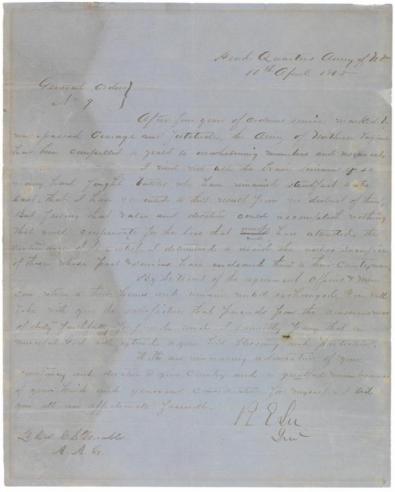 Head Quarters Army of N Va
10th April 1865
General Orders
No 9
After four years of arduous service marked by
unsurpassed Courage and fortitude, the Army of Northern Virginia
has been compelled to yield to overwhelming numbers and resources,
I need not tell the brave survivors of so
many hard fought battles who have remained steadfast to the
last, that I have consented to this result from no distrust of them,
But feeling that valor and devotion could accomplish nothing
that would compensate for the loss that would have attended the
continuance of the contest I determined to avoid the useless sacrifice
of those whose past services have endeared them to their Countrymen
By the terms of the agreement Officers & men
can return to their homes and remain until exchanged. You will
take with you the satisfaction that proceeds from the consciousness
of duty faithfully performed and I earnestly pray that a
merciful God will extend to you His blessing and protection.
With an unceasing admiration of your
constancy and devotion to your Country and a grateful remembrance
of your kind and generous consideration for myself I bid
you all an affectionate farewell.
R E Lee
Genl
A. A. G.